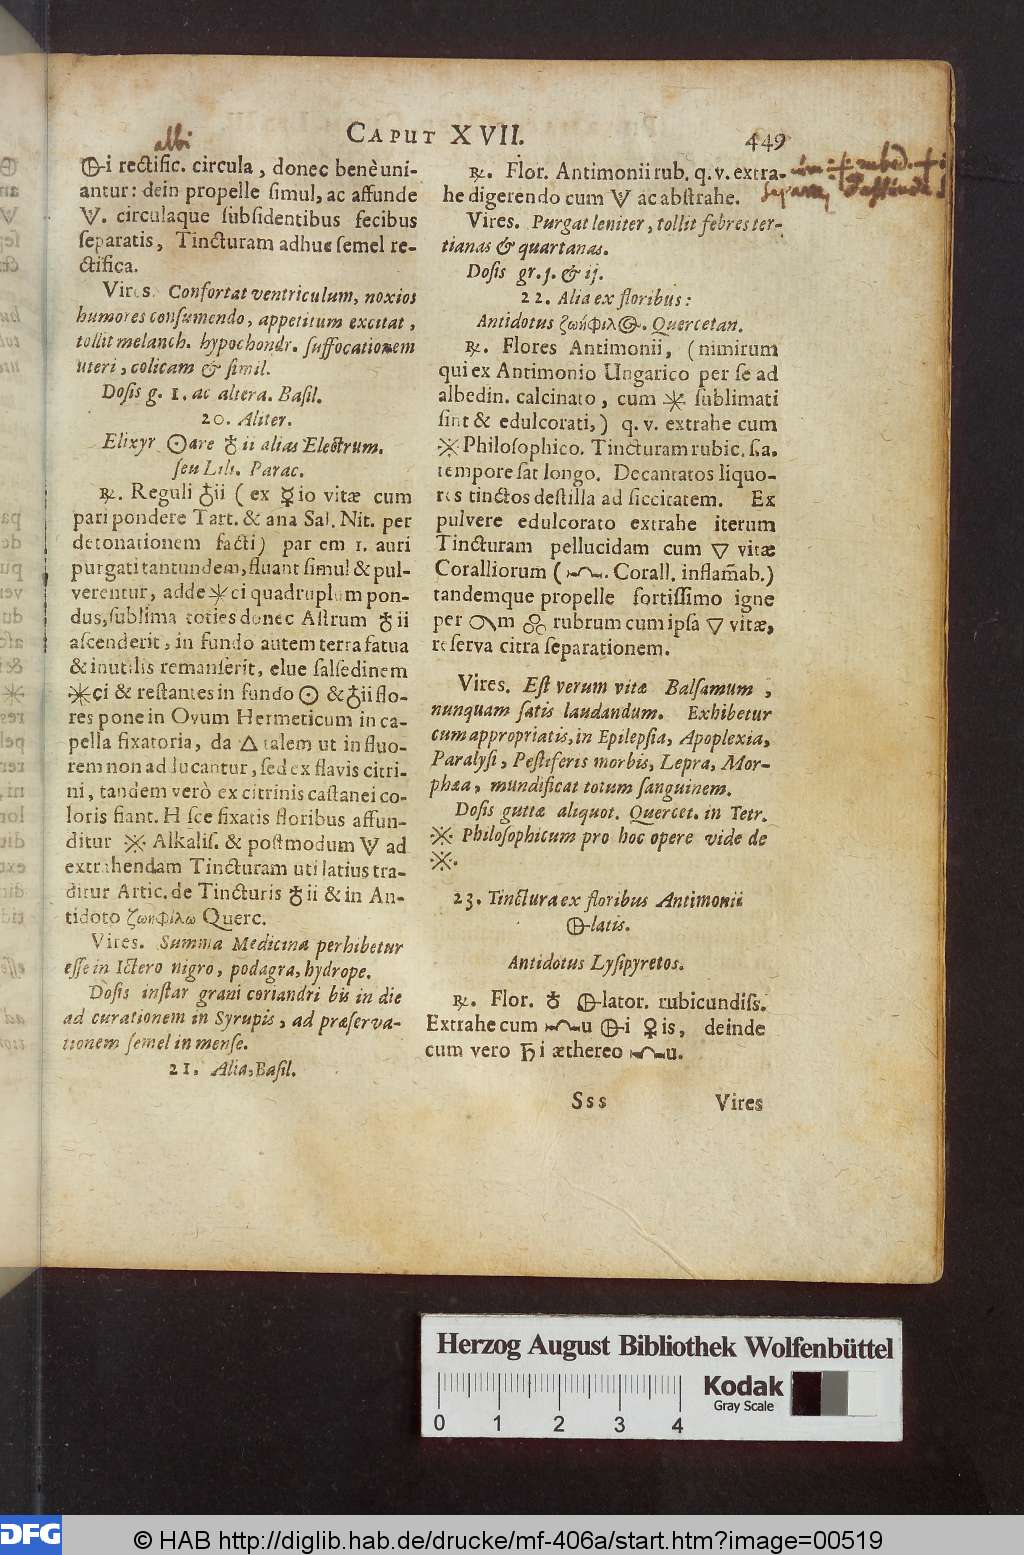 CAPUT XVII.
449
albi
🜔i rectific. circula, donec benè uni-
antur: dein propelle simul, ac affunde
V. circulaque subsidentibus fecibus
separatis, Tincturam adhuc semel re-
ctifica.
Vires. Confortat ventriculum, noxios
humores consumendo, appetitum excitat,
tollit melanch. hypochondr. suffocationem
uteri, colicam & simil.
Dosis g. 1. ac altera. Basil.
20. Aliter.
Elixyr ☉are ♁ii alias Electrum.
seu Lili. Parac.
℞. Reguli ♁ii (ex ☿io vitæ cum
pari pondere Tart. & ana Sal. Nit. per
detonationem facti) partem 1. auri
purgati tantundem, fluant simul & pul-
verentur, adde ✳ci quadruplum pon-
dus, sublima toties donec Astrum ♁ii
ascenderit, in fundo autem terra fatua
& inutilis remanserit, elue salsedinem
✳ci & restantes in fundo ☉ & ♁ii flo-
res pone in Ovum Hermeticum in ca-
pella fixatoria, da △ talem ut in fluo-
rem non adducantur, sed ex flavis citri-
ni, tandem verò ex citrinis castanei co-
loris fiant. Hisce fixatis floribus affun-
ditur ※ Alkalis. & postmodum V ad
extrahendam Tincturam uti latius tra-
ditur Artic. de Tincturis ♁ii & in An-
tidoto ζωηφίλω Querc.
Vires. Summa Medicina perhibetur
esse in Ictero nigro, podagra, hydrope.
Dosis instar grani coriandri bis in die
ad curationem in Syrupis, ad præserva-
tionem semel in mense.
21. Alia, Basil.
℞. Flor. Antimonii rub. q. v. extra-
he digerendo cum V ac abstrahe.
Vires. Purgat leniter, tollit febres ter-
tianas & quartanas.
Dosis gr. j. & ij.
22. Alia ex floribus:
Antidotus ζωήφιλ. Quercetan.
℞. Flores Antimonii, (nimirum
qui ex Antimonio Ungarico per se ad
albedin. calcinato, cum ✳ sublimati
sint & edulcorati,) q. v. extrahe cum
※ Philosophico. Tincturam rubic. s. a.
tempore sat longo. Decantatos liquo-
res tinctos destilla ad siccitatem. Ex
pulvere edulcorato extrahe iterum
Tincturam pellucidam cum ▽ vitæ
Coralliorum (. Corall. inflam̃ab.)
tandemque propelle fortissimo igne
per m rubrum cum ipsa ▽ vitæ,
reserva citra separationem.
Vires. Est verum vitæ Balsamum,
nunquam satis laudandum. Exhibetur
cum appropriatis, in Epilepsia, Apoplexia,
Paralysi, Pestiferis morbis, Lepra, Mor-
phæa, mundificat totum sanguinem.
Dosis guttæ aliquot. Quercet. in Tetr.
※ Philosophicum pro hoc opere vide de
※.
23. Tinctura ex floribus Antimonii
🜔latis.
Antidotus Lysipyretos.
℞. Flor. ♁ 🜔lator. rubicundiss.
Extrahe cum u 🜔i ♀is, deinde
cum vero ♄i æthereo u.
Sss
Vires
Herzog August Bibliothek Wolfenbüttel
Kodak
Gray Scale
0 1 2 3 4
DFG
© HAB http://diglib.hab.de/drucke/mf-406a/start.htm?image=00519